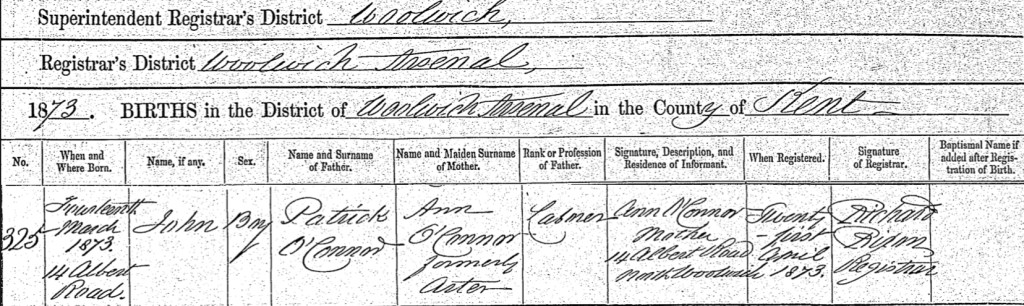 Superintendent Registrar's District Woolwich,
Registrar's District Woolwich Arsenal,
1873. BIRTHS in the District of Woolwich Arsenal in the County of Kent
No.
When and
Where Born.
Name, if any.
Sex.
Name and Surname
of Father.
Name and Maiden Surname
of Mother.
Rank or Profession
of Father.
Signature, Description, and
Residence of Informant.
When Registered.
Signature
of Registrar.
Baptismal Name if
added after Regis-
tration of Birth.
325
Fourteenth
March
1873.
14 Albert
Road.
John
Boy
Patrick
O'Connor
Ann
O'Connor
formerly
Arter
Ann O'Connor
Mother
14 Albert Road
North Woolwich
Twenty
-first
April
1873.
Richard
Registrar